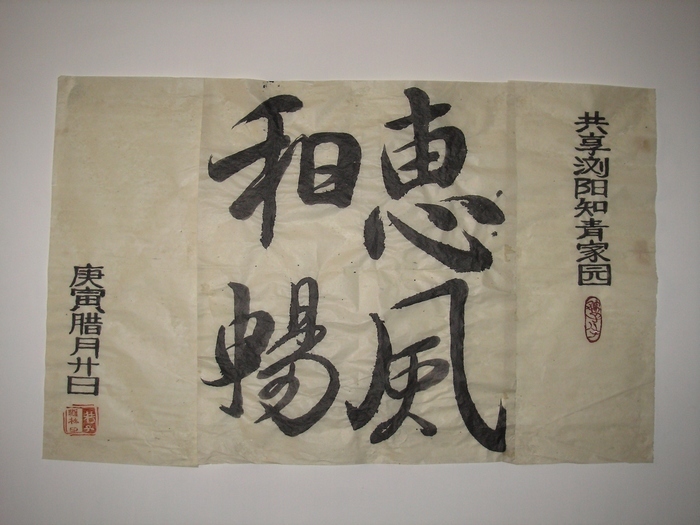 共享浏阳知青家园
惠风
和暢
庚寅腊月廿日